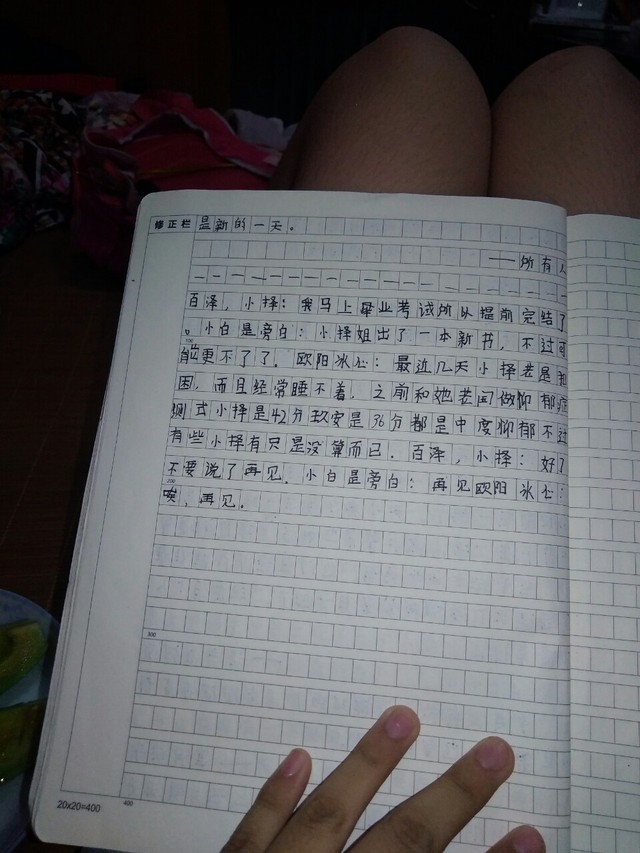 修正栏
是新的一天。
——所有人
百泽，小择：我马上毕业考试所以提前完结了
。小白是旁白：小择姐出了一本新书，不过可
能更不了了．欧阳冰心：最近几天小择老是犯
困，而且经常睡不着，之前和她老闺做仰郁症
测式小择是42分玖安是36分都是中度仰郁不过
有些小择有只是没算而已．百泽，小择：好了
不要说了再见．小白是旁白：再见欧阳冰心：
唉，再见．
100
200
300
400
20x20=400